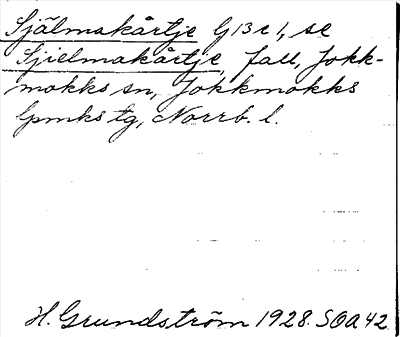 Själmakårtje G13c1, se
Sjielmakårtje, fall, Jokk-
mokks sn, Jokkmokks
lpmks tg, Norrb. l.
H. Grundström 1928. SOA 42.